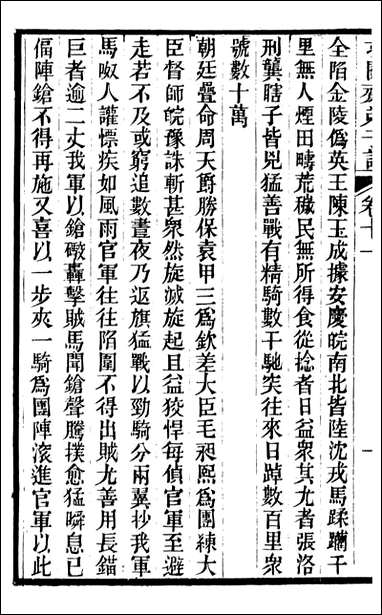 求闕齋弟子記 卷十一
全陷金陵僞英王陳玉成據安慶皖南北皆陸沈戎馬蹂躪千
里無人煙田疇荒穢民無所得食從捻者日益衆其尤者張洛
刑龔瞎子皆兇猛善戰有精騎數千馳突往來日踔數百里衆
號數十萬
朝廷疊命周天爵勝保袁甲三爲欽差大臣毛昶熙爲團練大
臣督師皖豫誅斬甚衆然旋滅旋起且益狡悍每偵官軍至避
走若不及或窮追數晝夜乃返旗猛戰以勁騎分兩翼抄我軍
馬呶人讙慓疾如風雨官軍往往陷圍不得出賊尤善用長錨
巨者逾二丈我軍以鎗礮轟擊賊馬聞鎗聲騰撲愈猛瞬息已
偪陣鎗不得再施又喜以一步夾一騎爲團陣滾進官軍以此